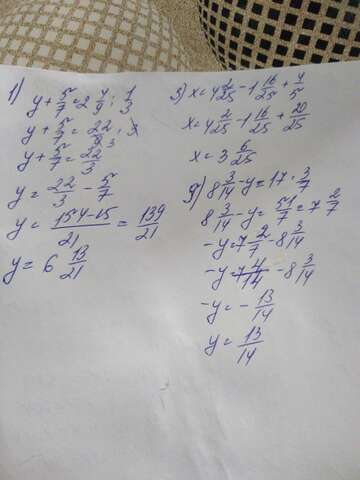 1) y + 5/7 = 2 4/9 : 1/3
y + 5/7 = 22/9 · 3
y + 5/7 = 22/3
y = 22/3 - 5/7
y = (154-15)/21 = 139/21
y = 6 13/21
5) x = 4 2/25 - 1 16/25 + 4/5
x = 4 2/25 - 1 16/25 + 20/25
x = 3 6/25
9) 8 3/14 - y = 17 · 3/7
8 3/14 - y = 51/7 = 7 2/7
-y = 7 2/7 - 8 3/14
-y = 7 4/14 - 8 3/14
-y = - 13/14
y = 13/14